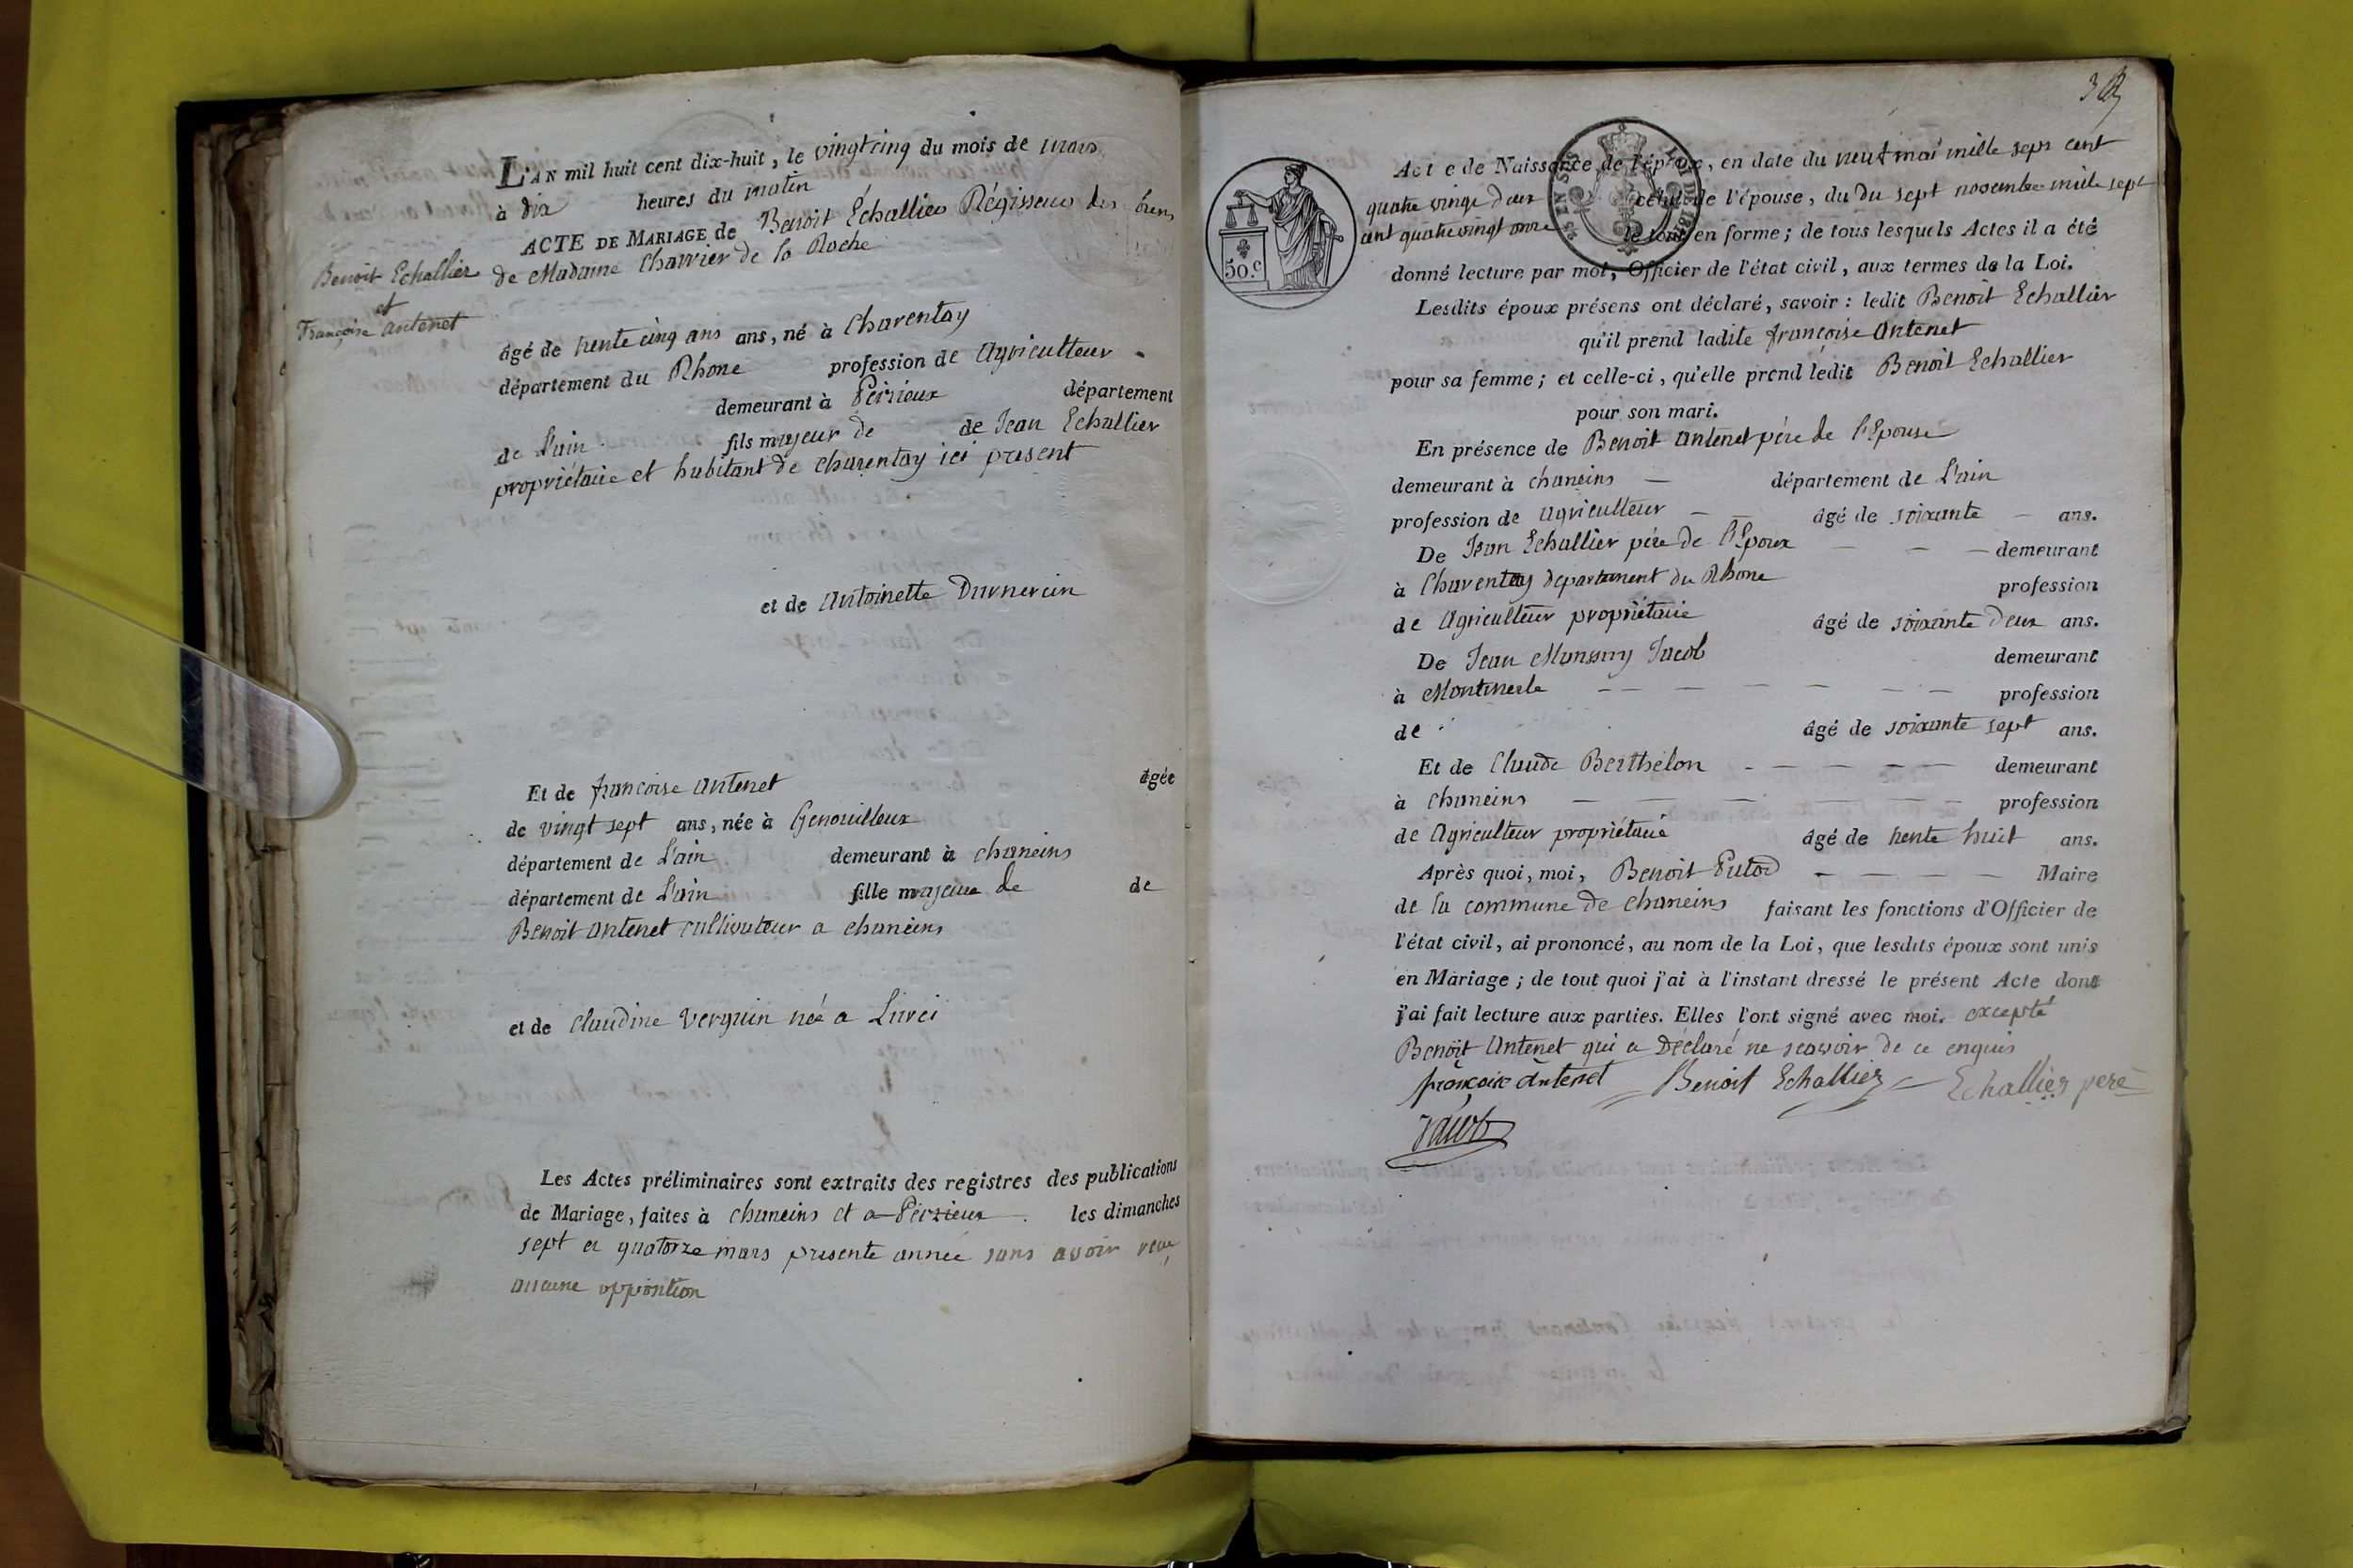 L'AN mil huit cent dix-huit, le vingt cinq du mois de mars
à dix heures du matin
ACTE DE MARIAGE de Benoit Echallier Régisseur des biens
de Madame Charrier de la Roche
Benoit Echallier
et
Françoise antenet
âgé de trente cinq ans ans, né à Charentay
département du Rhone profession de Agriculteur
demeurant à Pérrieux département
de L'ain fils majeur de de Jean Echallier
propriétaire et habitant de charentay ici présent
et de Antoinette
Et de françoise antenet âgée
de vingt sept ans, née à Genouilleux
département de L'ain demeurant à chaneins
département de L'ain fille majeure de de
Benoit antenet cultivateur a chaneins
et de Claudine Verguin née a Lurci
Les Actes préliminaires sont extraits des registres des publications
de Mariage, faites à chaneins et a les dimanches
sept et quatorze mars presente année sans avoir reçu
aucune opposition
Acte de Naissance de l'époux, en date du neuf mai mille sept cent
quatre vingt deux celui de l'épouse, du du sept novembre mille sept
cent quatre vingt onze le tout en forme; de tous lesquels Actes il a été
50.c
donné lecture par moi, Officier de l'état civil, aux termes de la Loi.
Lesdits époux présens ont déclaré, savoir: ledit Benoit Echallier
qu'il prend ladite françoise antenet
pour sa femme; et celle-ci, qu'elle prend ledit Benoit Echallier
pour son mari.
En présence de Benoit antenet père de l'Epouse
demeurant à chaneins département de L'ain
profession de agriculteur âgé de soixante ans.
De Jean Echallier père de l'Epoux demeurant
à Charentay département du Rhône profession
de Agriculteur propriétaire âgé de soixante deux ans.
De Jean Jacob demeurant
à Montmerle profession
de âgé de soixante sept ans.
Et de Claude Berthelon demeurant
à Chaneins profession
de Agriculteur propriétaire âgé de trente huit ans.
Après quoi, moi, Benoit Maire
de la commune de chaneins faisant les fonctions d'Officier de
l'état civil, ai prononcé, au nom de la Loi, que lesdits époux sont unis
en Mariage; de tout quoi j'ai à l'instant dressé le présent Acte dont
j'ai fait lecture aux parties. Elles l'ont signé avec moi. excepté
Benoit Antenet qui a Déclaré ne scavoir de ce enquis
françoise antenet Benoit Echallier Echallier pere
Jacob